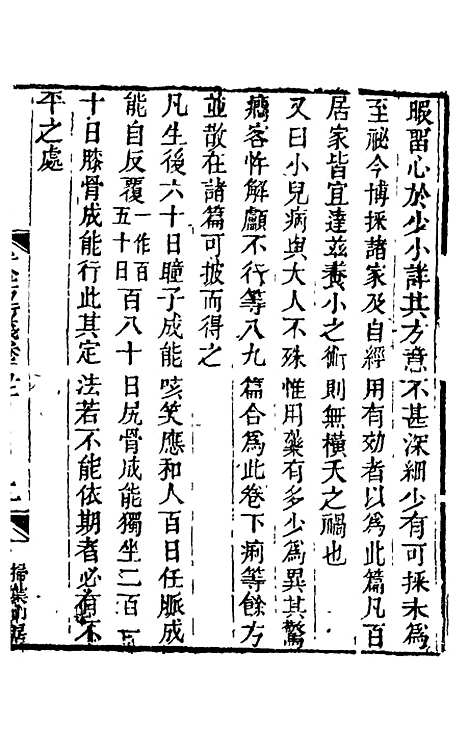 暇留心於少小詳其方意不甚深細少有可採未為
至祕今博採諸家及自經用有効者以為此篇凡百
居家皆宜達茲養小之術則無橫夭之禍也
又曰小兒病與大人不殊惟用藥有多少為異其驚
癇客忤解顱不行等八九篇合為此卷下痢等餘方
並散在諸篇可披而得之
凡生後六十日瞳子成能咳笑應和人百日任脈成
能自反覆一作百五十日百八十日尻骨成能獨坐二百一
十日膝骨成能行此其定法若不能依期者必有不
平之處
掃葉